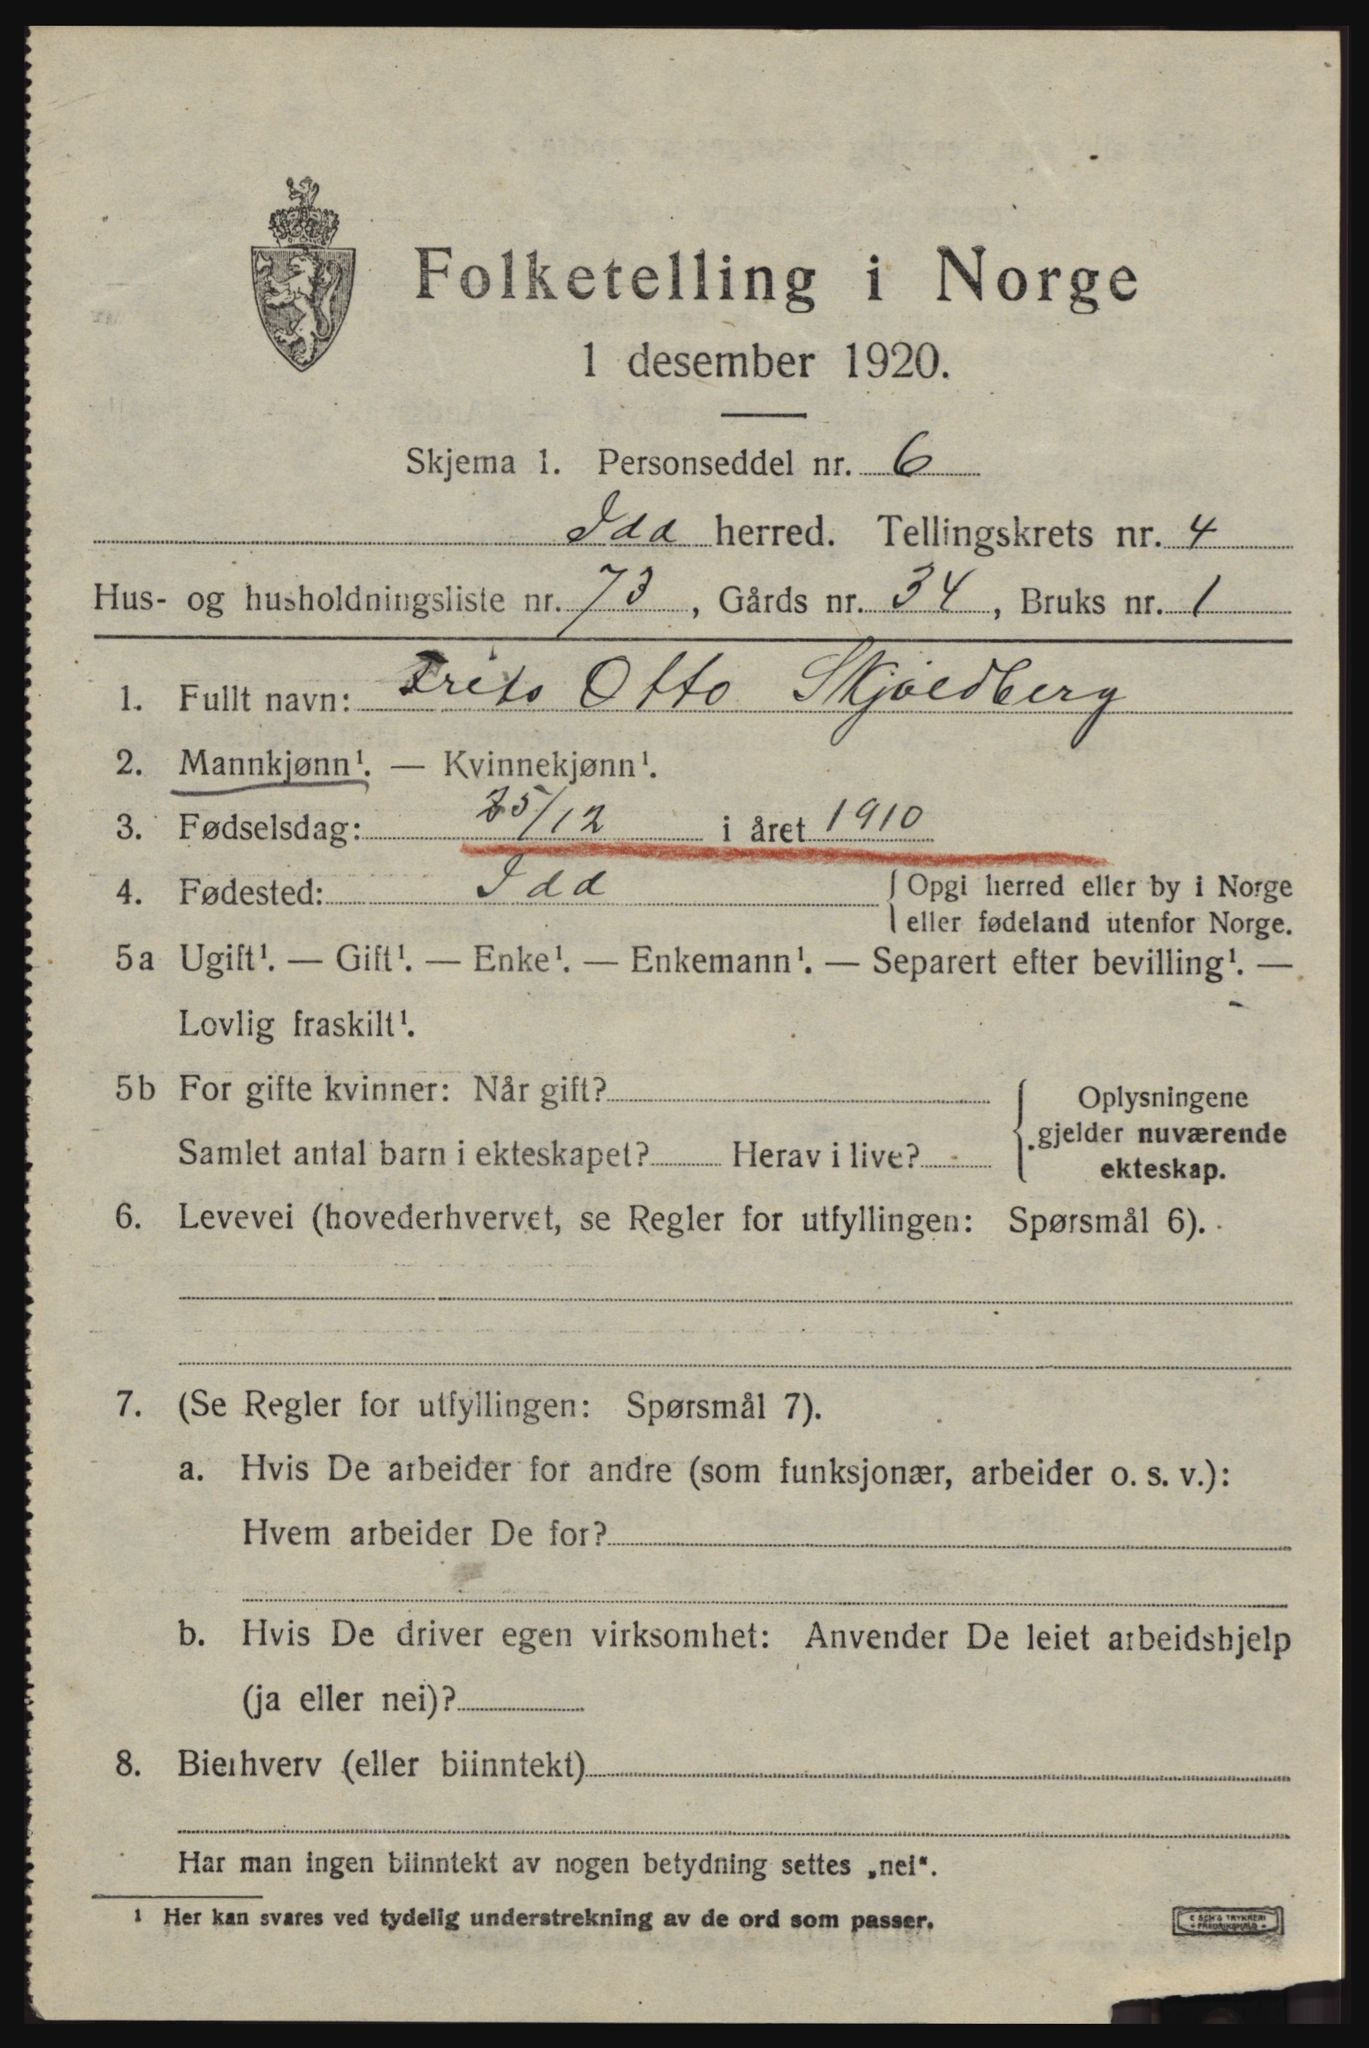 Folketelling i Norge
1 desember 1920.
Skjema 1. Personseddel nr. 6
Idd herred. Tellingskrets nr. 4
Hus- og husholdningsliste nr. 73, Gårds nr. 34, Bruks nr. 1
1. Fullt navn: Frits Otto Skjoldberg
2. Mannkjønn¹. — Kvinnekjønn¹.
3. Fødselsdag: 25/12 i året 1910
4. Fødested: Idd { Opgi herred eller by i Norge
eller fødeland utenfor Norge.
5a Ugift¹. — Gift¹. — Enke¹. — Enkemann¹. — Separert efter bevilling¹. —
Lovlig fraskilt¹.
5b For gifte kvinner: Når gift?
Samlet antal barn i ekteskapet? Herav i live?
Oplysningene
gjelder nuværende
ekteskap.
6. Levevei (hovederhvervet, se Regler for utfyllingen: Spørsmål 6).
7. (Se Regler for utfyllingen: Spørsmål 7).
a. Hvis De arbeider for andre (som funksjonær, arbeider o. s. v.):
Hvem arbeider De for?
b. Hvis De driver egen virksomhet: Anvender De leiet arbeidshjelp
(ja eller nei)?
8. Bierhverv (eller biinntekt)
Har man ingen biinntekt av nogen betydning settes „nei“.
¹ Her kan svares ved tydelig understrekning av de ord som passer.
TRYKKERI
FREDRIKSHALD